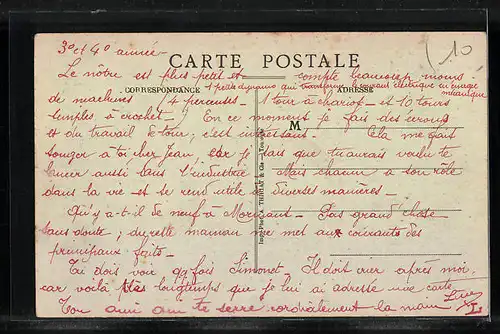 3º et 4º année -
(10
CARTE POSTALE
Le nôtre est plus petit et compte beaucoup moins
CORRESPONDANCE
ADRESSE
1 petite dynamo qui transforme le courant électrique en énergie mécanique
de machines (4 perceuses - 1 tour à chariot - et 10 tours
simples à crochet) En ce moment je fais des
et du travail de tour; c'est intéressant - Cela me fait
M
songer à toi cher Jean, car je sais que tu aurais voulu te
lancer aussi dans l'industrie Mais chacun a son rôle
dans la vie et se rend utile de diverses manières -
Qu'y a-t-il de neuf à Pas grand'chose
sans doute; du reste maman me met au courant des
principaux faits -
Tu dois voir qqfois Simonet - Il doit crier après moi,
car voilà très longtemps que je lui ai adressé une carte
Ton ami qui te serre cordialement la main
Imp.-Phot. A. THIRIAT & Cie - Toulouse